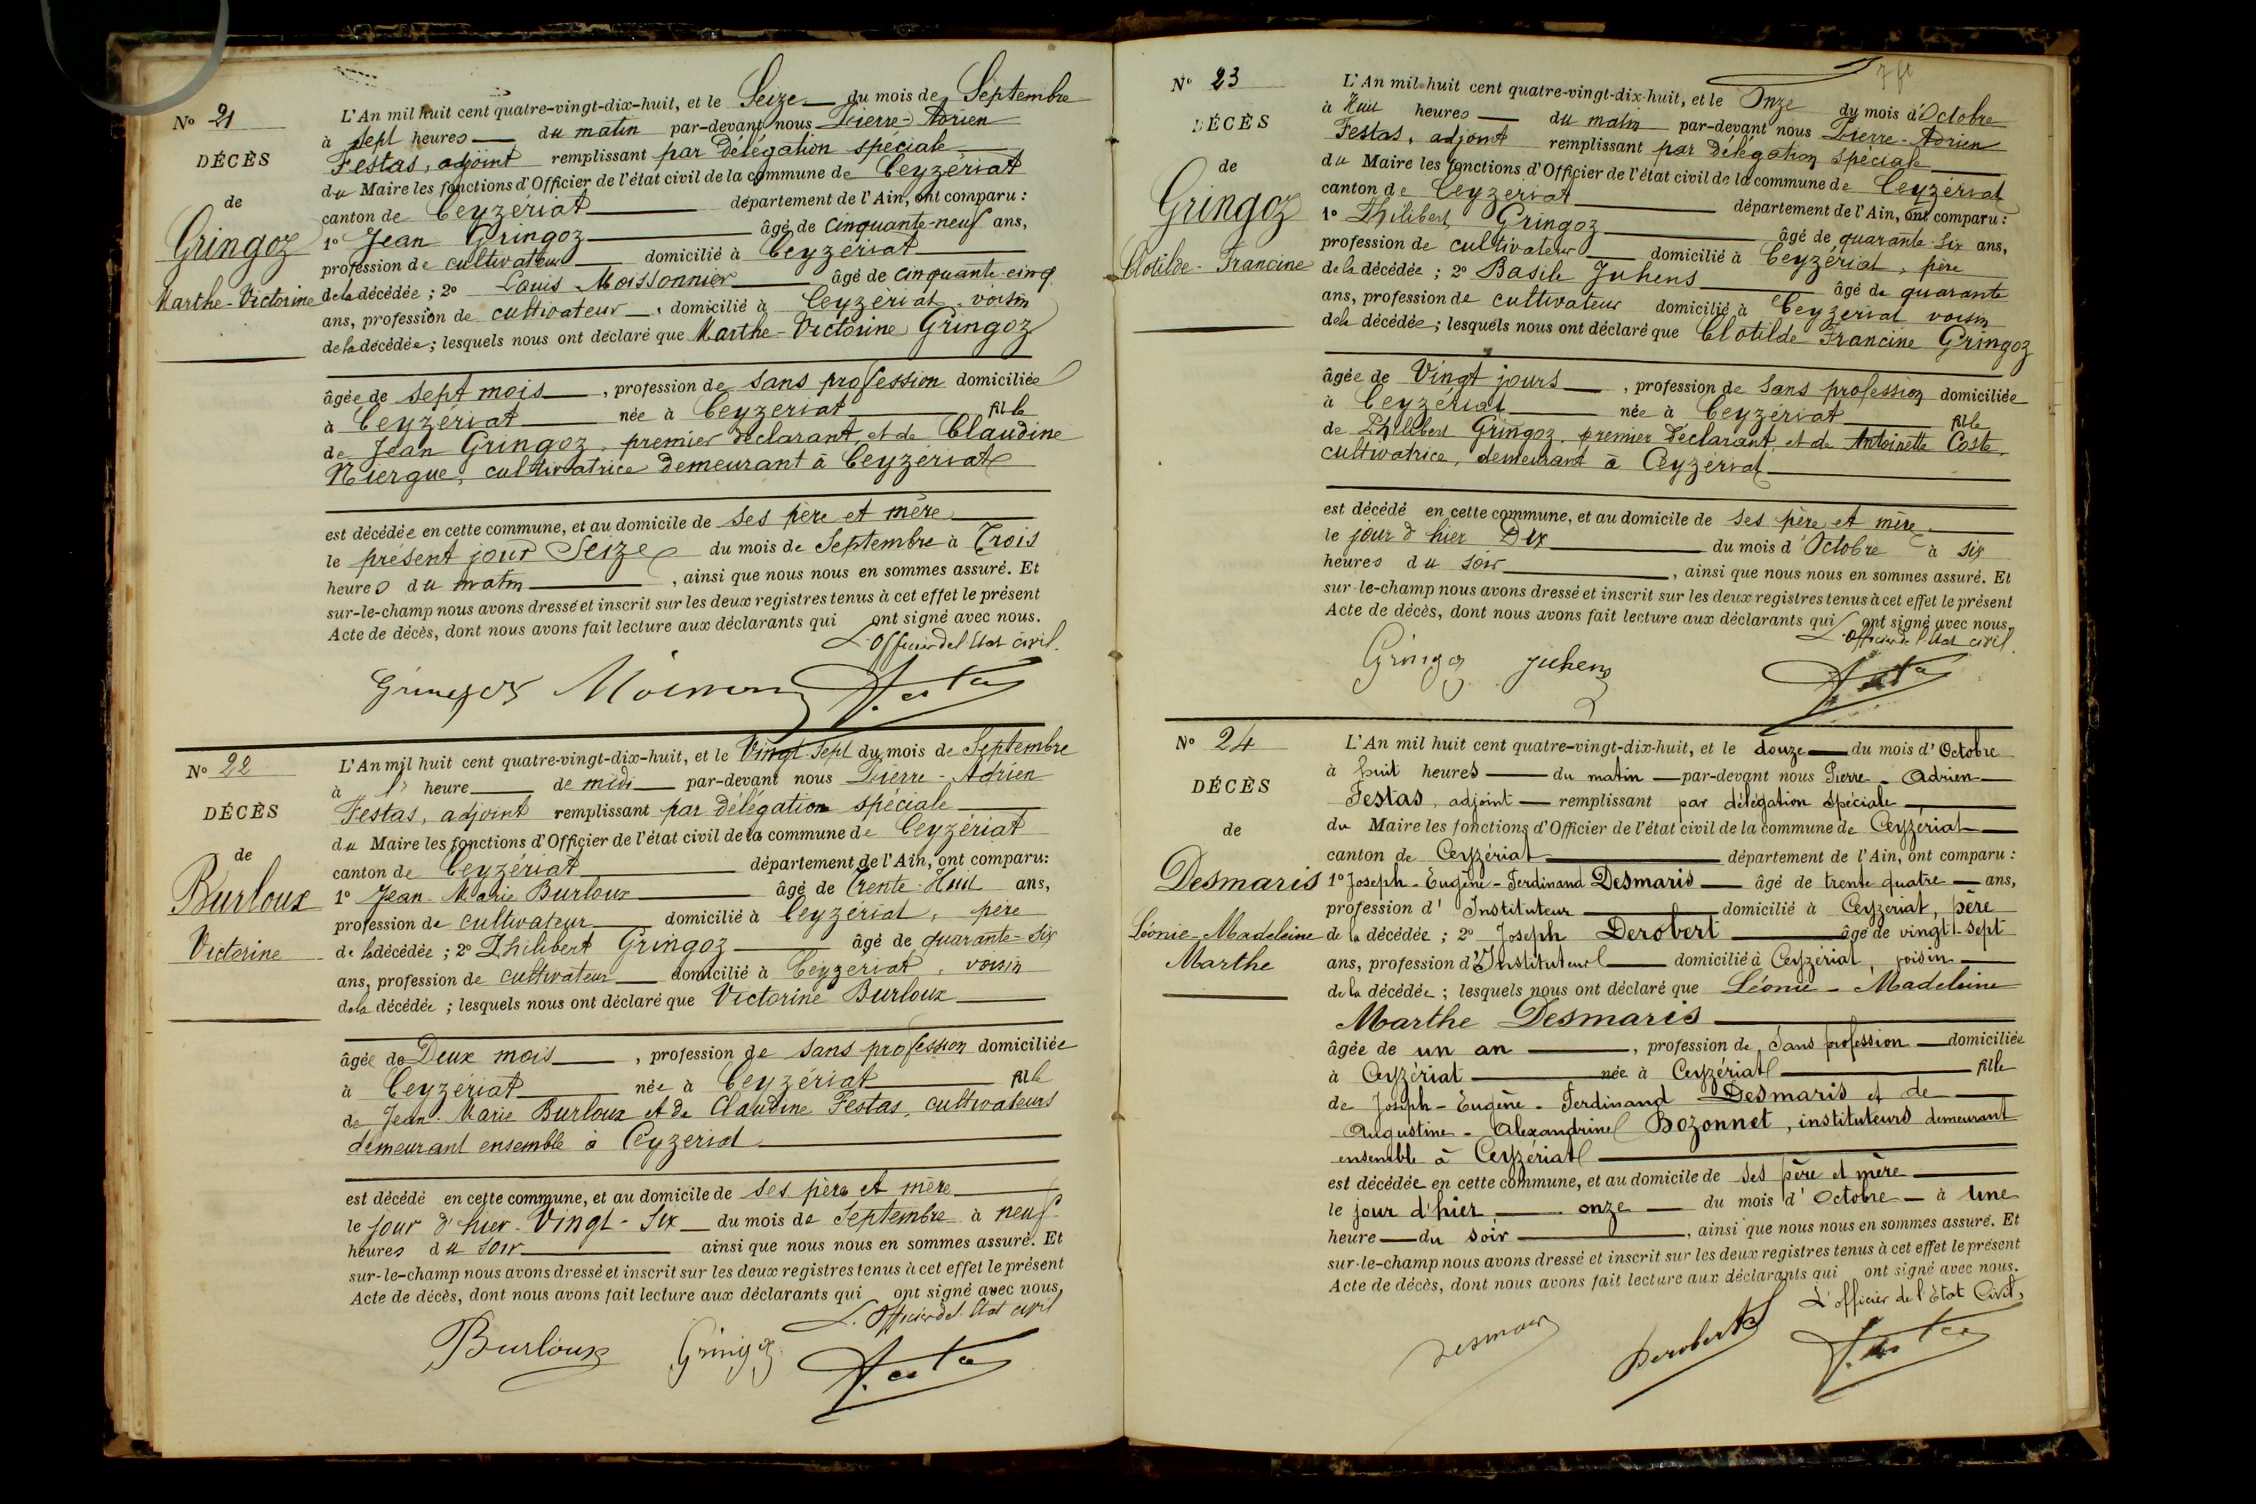 N° 21
DÉCÈS
de
Gringoz
Marthe-Victorine
L'An mil huit cent quatre-vingt-dix-huit, et le Seize du mois de Septembre
à sept heures du matin par-devant nous Pierre-Adrien
Festas, adjoint remplissant par délégation spéciale
du Maire les fonctions d'Officier de l'état civil de la commune de Ceyzériat
canton de Ceyzériat département de l'Ain, ont comparu :
1° Jean Gringoz âgé de cinquante-neuf ans,
profession de cultivateur domicilié à Ceyzériat
de la décédée ; 2° Louis Moissonnier âgé de cinquante-cinq
ans, profession de cultivateur, domicilié à Ceyzériat, voisin
de la décédée ; lesquels nous ont déclaré que Marthe-Victorine Gringoz
âgée de sept mois, profession de sans profession domiciliée
à Ceyzériat née à Ceyzeriat fille
de Jean Gringoz, premier déclarant, et de Claudine
Niergue, cultivatrice demeurant à Ceyzériat
est décédée en cette commune, et au domicile de ses père et mère
le présent jour Seize du mois de Septembre à Trois
heures du matin, ainsi que nous nous en sommes assuré. Et
sur-le-champ nous avons dressé et inscrit sur les deux registres tenus à cet effet le présent
Acte de décès, dont nous avons fait lecture aux déclarants qui ont signé avec nous.
L'Officier de l'Etat civil.
Gringoz Festas
N° 22
DÉCÈS
de
Burloux
Victorine
L'An mil huit cent quatre-vingt-dix-huit, et le Vingt-Sept du mois de Septembre
à 1 heure de midi par-devant nous Pierre-Adrien
Festas, adjoint remplissant par délégation spéciale
du Maire les fonctions d'Officier de l'état civil de la commune de Ceyzériat
canton de Ceyzériat département de l'Ain, ont comparu :
1° Jean-Marie Burloux âgé de Trente-Huit ans,
profession de cultivateur domicilié à Ceyzériat, père
de la décédée ; 2° Philibert Gringoz âgé de quarante-six
ans, profession de cultivateur domicilié à Ceyzériat, voisin
de la décédée ; lesquels nous ont déclaré que Victorine Burloux
âgée de Deux mois, profession de sans profession domiciliée
à Ceyzériat née à Ceyzériat fille
de Jean-Marie Burloux et de Claudine Festas, cultivateurs
demeurant ensemble à Ceyzeriat
est décédé en cette commune, et au domicile de ses père et mère
le jour d'hier Vingt-Six du mois de Septembre à neuf
heures du soir ainsi que nous nous en sommes assuré. Et
sur-le-champ nous avons dressé et inscrit sur les deux registres tenus à cet effet le présent
Acte de décès, dont nous avons fait lecture aux déclarants qui ont signé avec nous,
L'Officier de l'Etat civil
Burloux Gringoz Festas
N° 23
DÉCÈS
de
Gringoz
Clotilde-Francine
L'An mil-huit cent quatre-vingt-dix-huit, et le Onze du mois d'Octobre
à Huit heures du matin par-devant nous Pierre-Adrien
Festas, adjoint remplissant par délégation spéciale
du Maire les fonctions d'Officier de l'état civil de la commune de Ceyzériat
canton de Ceyzériat département de l'Ain, ont comparu :
1° Philibert Gringoz âgé de quarante-six ans,
profession de cultivateur domicilié à Ceyzériat, père
de la décédée ; 2° Basile Juhens âgé de quarante
ans, profession de cultivateur domicilié à Ceyzériat voisin
de la décédée ; lesquels nous ont déclaré que Clotilde Francine Gringoz
âgée de Vingt jours, profession de sans profession domiciliée
à Ceyzériat née à Ceyzériat fille
de Philibert Gringoz, premier déclarant, et de Antoinette Coste,
cultivatrice, demeurant à Ceyzériat
est décédé en cette commune, et au domicile de ses père et mère
le jour d'hier Dix du mois d'Octobre à six
heures du soir, ainsi que nous nous en sommes assuré. Et
sur-le-champ nous avons dressé et inscrit sur les deux registres tenus à cet effet le présent
Acte de décès, dont nous avons fait lecture aux déclarants qui ont signé avec nous.
L'Officier de l'Etat civil.
Gringoz Juhens Festas
N° 24
DÉCÈS
de
Desmaris
Léonie-Madeleine
Marthe
L'An mil huit cent quatre-vingt-dix-huit, et le douze du mois d'Octobre
à huit heures du matin par-devant nous Pierre-Adrien
Festas, adjoint remplissant par délégation spéciale,
du Maire les fonctions d'Officier de l'état civil de la commune de Ceyzériat
canton de Ceyzériat département de l'Ain, ont comparu :
1° Joseph-Eugène-Ferdinand Desmaris âgé de trente quatre ans,
profession d'Instituteur domicilié à Ceyzeriat, père
de la décédée ; 2° Joseph Derobert âgé de vingt-sept
ans, profession d'Instituteur domicilié à Ceyzériat, voisin
de la décédée ; lesquels nous ont déclaré que Léonie-Madeleine
Marthe Desmaris
âgée de un an, profession de sans profession domiciliée
à Ceyzériat née à Ceyzériat fille
de Joseph-Eugène-Ferdinand Desmaris et de
Augustine-Alexandrine Bozonnet, instituteurs demeurant
ensemble à Ceyzériat
est décédée en cette commune, et au domicile de ses père et mère
le jour d'hier onze du mois d'Octobre à une
heure du soir, ainsi que nous nous en sommes assuré. Et
sur-le-champ nous avons dressé et inscrit sur les deux registres tenus à cet effet le présent
Acte de décès, dont nous avons fait lecture aux déclarants qui ont signé avec nous.
L'officier de l'Etat Civil,
Desmaris Derobert Festas